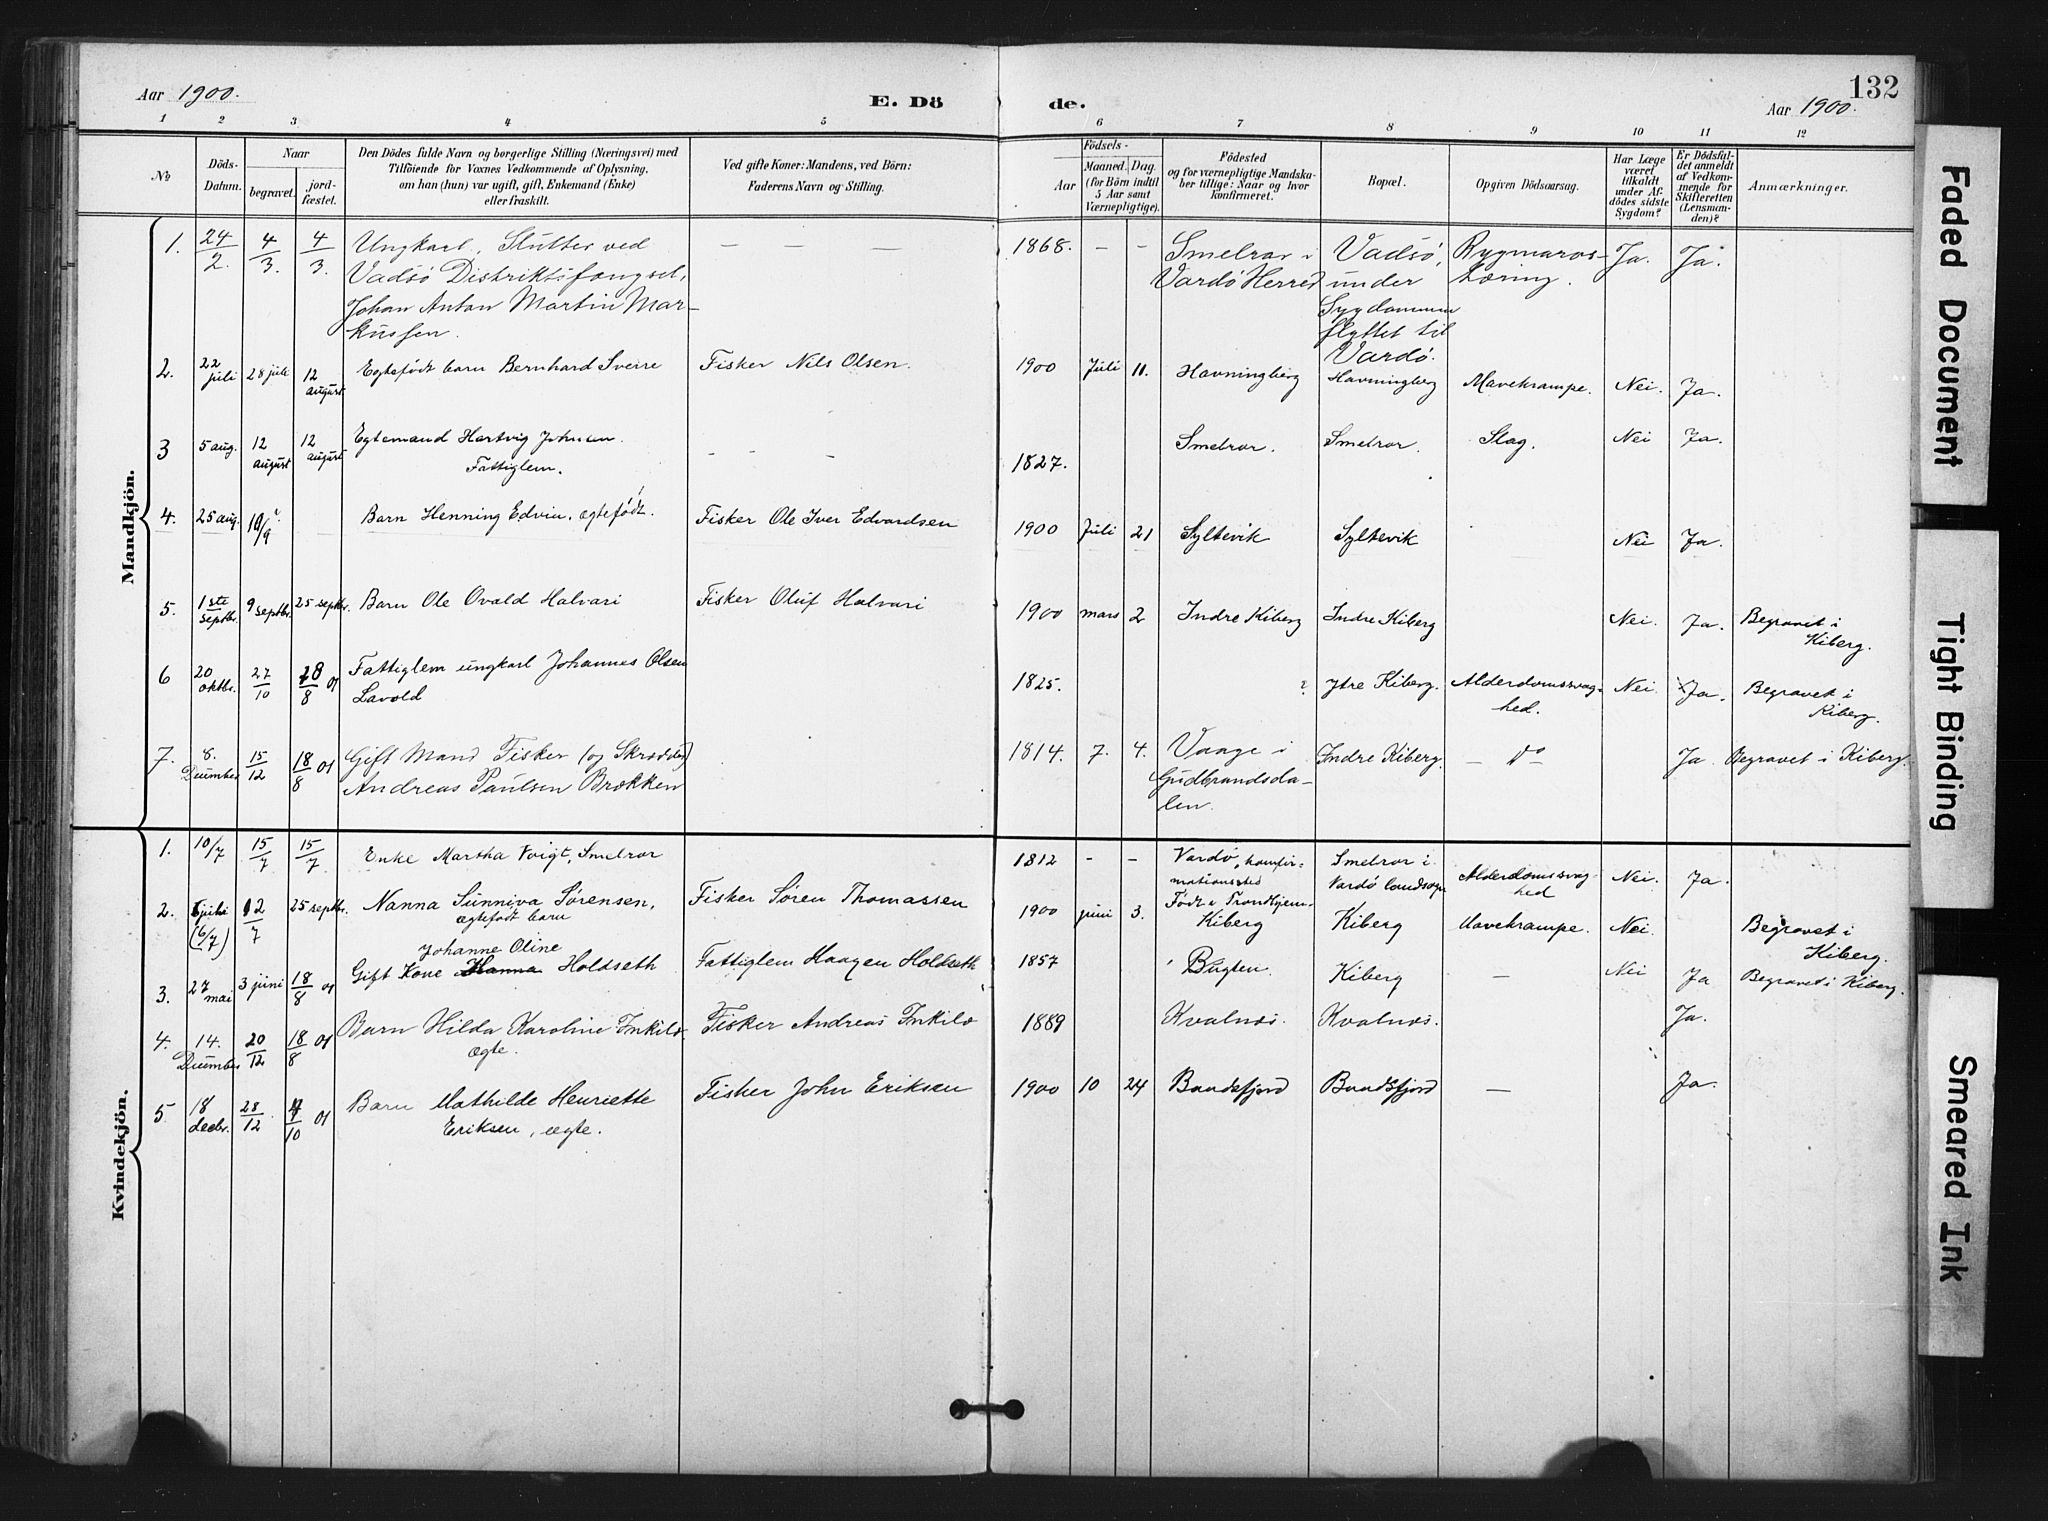 Aar 1900.
E. Dö
de.
Aar 1900.
132
1 2 3 4 5 6 7 8 9 10 11 12
№
Döds-
Datum.
Naar
begravet.
jord-
fæstet.
Den Dödes fulde Navn og borgerlige Stilling (Næringsvei) med
Tilföiende for Voxnes Vedkommende af Oplysning,
om han (hun) var ugift, gift, Enkemand (Enke)
eller fraskilt.
Ved gifte Koner: Mandens, ved Börn:
Faderens Navn og Stilling.
Födsels-
Aar
Maaned.
Dag.
(for Börn indtil
5 Aar samt
Værnepligtige).
Födested
og for værnepligtige Mandska-
ber tillige: Naar og hvor
konfirmeret.
Bopæl.
Opgiven Dödsaarsag.
Har Læge
været
tilkaldt
under Af-
dödes sidste
Sygdom?
Er Dödsfal-
det anmeldt
af Vedkom-
mende for
Skifteretten
(Lensman-
den)?
Anmærkninger.
Mandkjön.
1. 24/2. 4/3. 4/3. Ungkarl, Slutter ved
Vadsö Distriktsfængsel,
Johan Anton Martin Mar-
kussen.
— — —
1868. – – Smelror i
Vardö Herred
Vadsö,
under
Sygdommen
flyttet til
Vardö.
Rygmarvs-
tæring.
Ja. Ja.
2. 22 juli 28 juli 12 august Egtefödt barn Bernhard Sverre Fisker Nils Olsen. 1900 Juli 11. Havningberg Havningberg Mavekrampe. Nei. Ja.
3 5 aug. 12 august 12 august Egtemand Hartvig Johnsen.
Fattiglem.
– – –
1827. Smelror. Smelror. Slag. Nei Ja.
4. 25 aug. 10/9 Barn Henning Edvin, ægtefödt. Fisker Ole Iver Edvardsen 1900 Juli 21 Syltevik Syltevik Nei Ja.
5. 1ste septbr. 9 septbr. 25 septbr. Barn Ole Ovald Halvari Fisker Oluf Halvari 1900 mars 2 Indre Kiberg Indre Kiberg Nei. Ja. Begravet i
Kiberg.
6 20 oktbr. 27/10 18/8 01 Fattiglem ungkarl Johannes Olsen
Lavold
1825. ? Ytre Kiberg. Alderdomssvag-
hed.
Nei. Ja. Begravet i
Kiberg.
7. 8. December 15/12 18/8 01 Gift Mand Fisker (og Skrædder)
Andreas Paulsen Brækken
1814. 7. 4. Vaage i
Gudbrandsda-
len.
Indre Kiberg. — Do Ja. Begravet i Kiberg.
Kvindekjön.
1. 10/7 15/7 15/7 Enke Martha Voigt, Smelror 1812 – – Vardö, konfir-
mationssted
Födt i Trondhjem.
Smelror i
Vardö landsogn
Alderdomssvag-
hed
Nei. Ja.
2. juli (6/7) 12/7 25 septbr. Nanna Sunniva Sørensen,
ægtefödt barn
Fisker Søren Thomassen 1900 juni 3. Kiberg Kiberg Mavekrampe. Nei. Begravet i
Kiberg.
3. 27 mai 3 juni 18/8 01 Johanne Oline
Gift Kone Hanna Holdseth Fattiglem Haagen Holdseth 1857 Bugten. Kiberg — Nei Ja Begravet i Kiberg.
4. 14. December 20/12 18/8 01 Barn Hilda Karoline Inkilæ
ægte.
Fisker Andreas Inkilæ 1889 Kvalnes. Kvalnes. Ja.
5 18 decbr. 28/12 4/10 01 Barn Mathilde Henriette
Eriksen, ægte.
Fisker John Eriksen 1900 10 24 Baadsfjord Baadsfjord — Ja.
Faded Document
Tight Binding
Smeared Ink